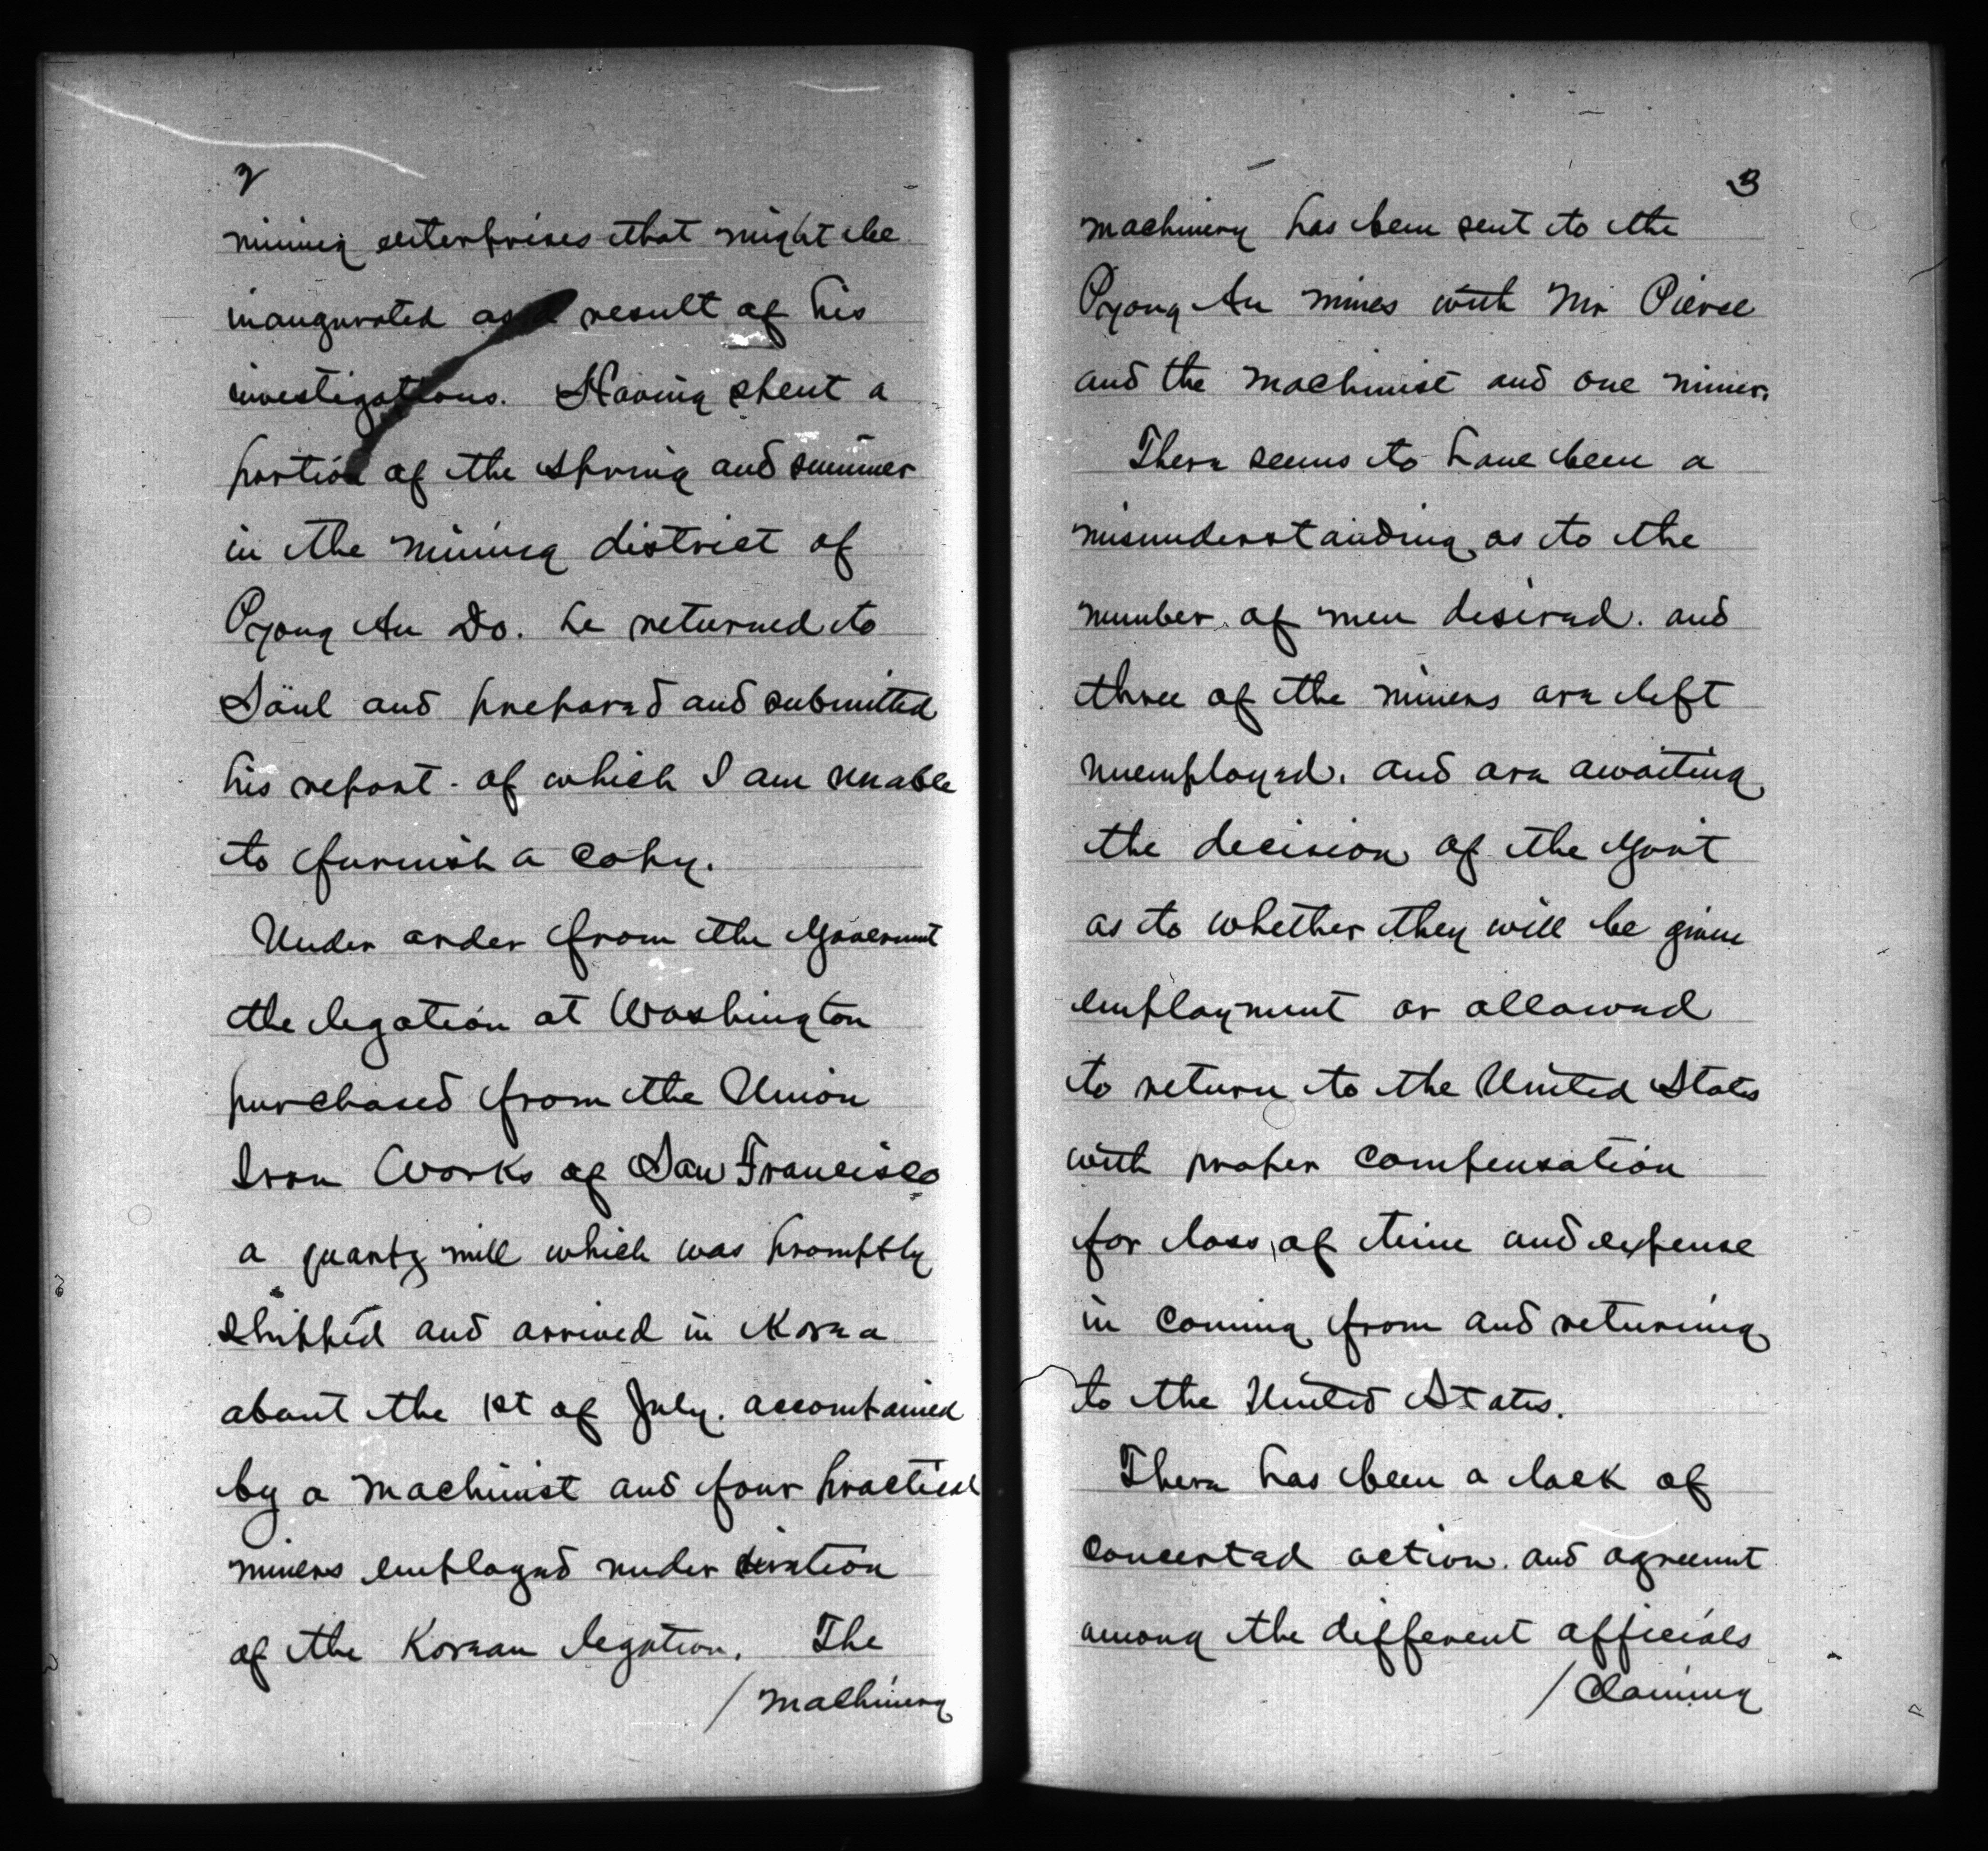 2
mining enterprises that might be
inaugurated as a result of his
investigations. Having spent a
portion of the spring and summer
in the mining district of
Pyong An Do. he returned to
Söul and prepared and submitted
his report - of which I am unable
to furnish a copy.
Under order from the Government
the legation at Washington
purchased from the Union
Iron Works of San Francisco
a quartz mill which was promptly
shipped and arrived in Korea
about the 1st of July. accompanied
by a machinist and four practical
miners employed under
of the Korean legation. The
/ machinery
3
machinery has been sent to the
Pyong An mines with Mr Pierce
and the machinist and one miner.
There seems to have been a
misunderstanding as to the
number of men desired. and
three of the miners are left
unemployed. and are awaiting
the decision of the Govt
as to whether they will be given
employment or allowed
to return to the United States
with proper compensation
for loss of time and expense
in coming from and returning
to the United States.
There has been a lack of
concerted action. and agreement
among the different officials
/ Claiming